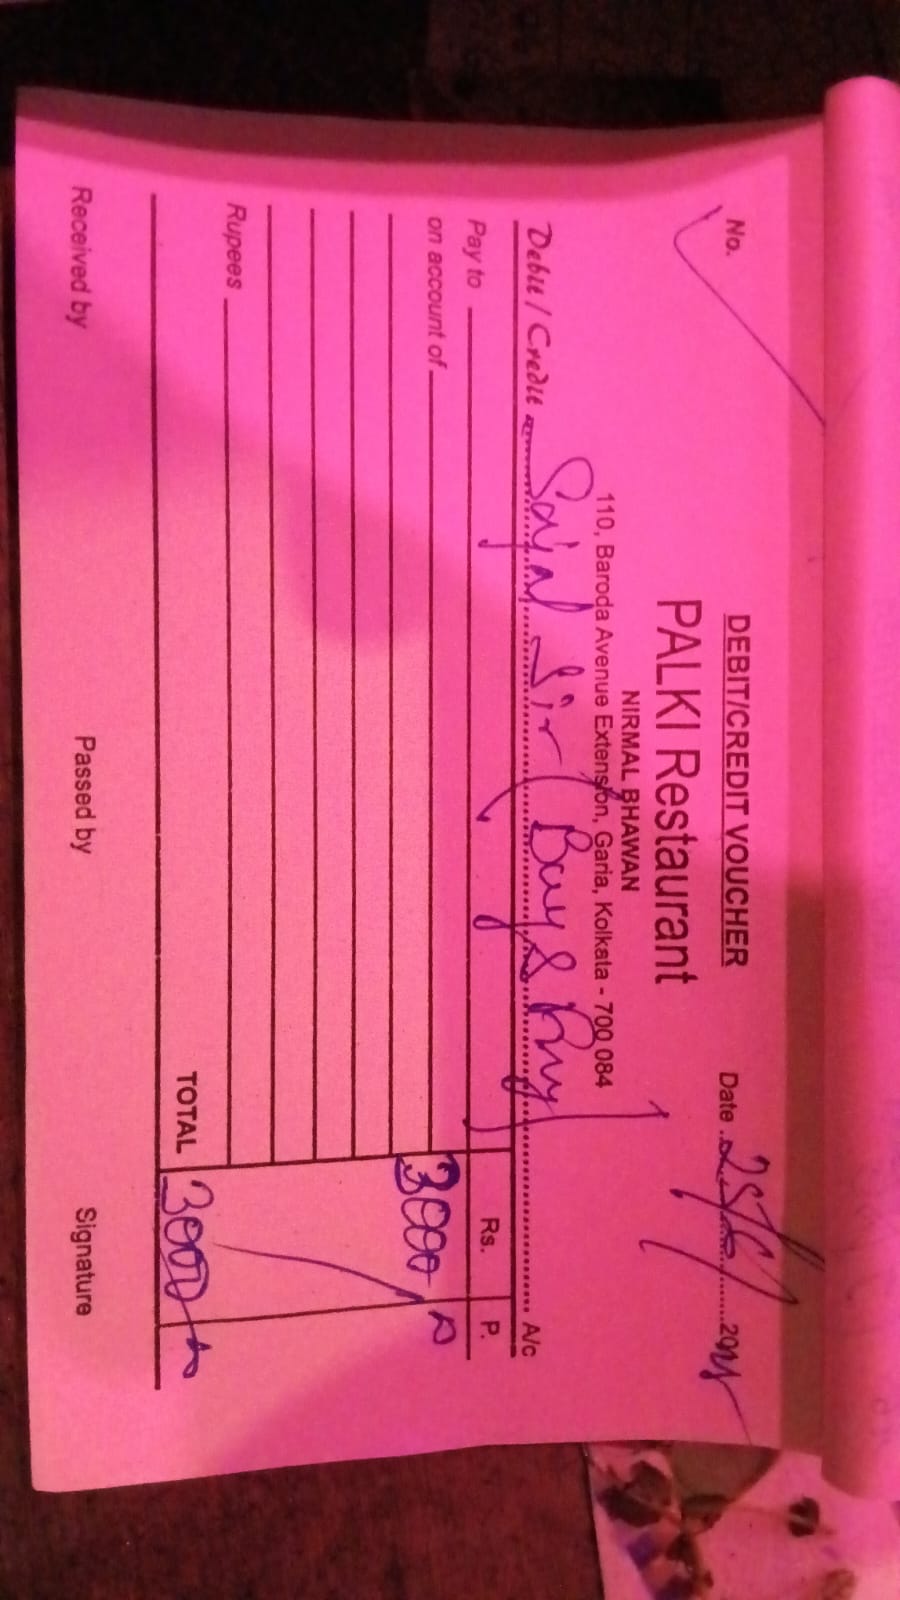 DEBIT/CREDIT VOUCHER
No. Date 25/6/2025
PALKI Restaurant
NIRMAL BHAWAN
110, Baroda Avenue Extension, Garia, Kolkata - 700 084
Debit / Credit Sajal Sir ( ) A/c
Pay to Rs. P.
on account of 3000
Rupees
TOTAL 3000
Received by Passed by Signature